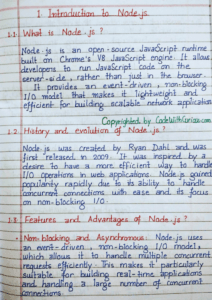 1. Introduction to Node.js
1.1. What is Node.js ?
Node.js is an open-source JavaScript runtime
built on Chrome's V8 JavaScript engine. It allows
developers to run JavaScript code on the
server-side, rather than just in the browser.
It provides an event-driven, non-blocking
I/O model that makes it lightweight and
efficient for building scalable network applications
Copyrighted by CodeWithCurious.com
1.2. History and evolution of Node.js ?
Node.js was created by Ryan Dahl and was
first released in 2009. It was inspired by a
desire to have a more efficient way to handle
I/O operations in web applications. Node.js gained
popularity rapidly due to its ability to handle
concurrent connections with ease and its focus
on non-blocking I/O.
1.3. Features and Advantages of Node.js ?
• Non-blocking and Asynchronous: Node.js uses
an event-driven, non-blocking I/O model,
which allows it to handle multiple concurrent
requests efficiently. This makes it particularly
suitable for building real-time applications
and handling a large number of concurrent
connections.